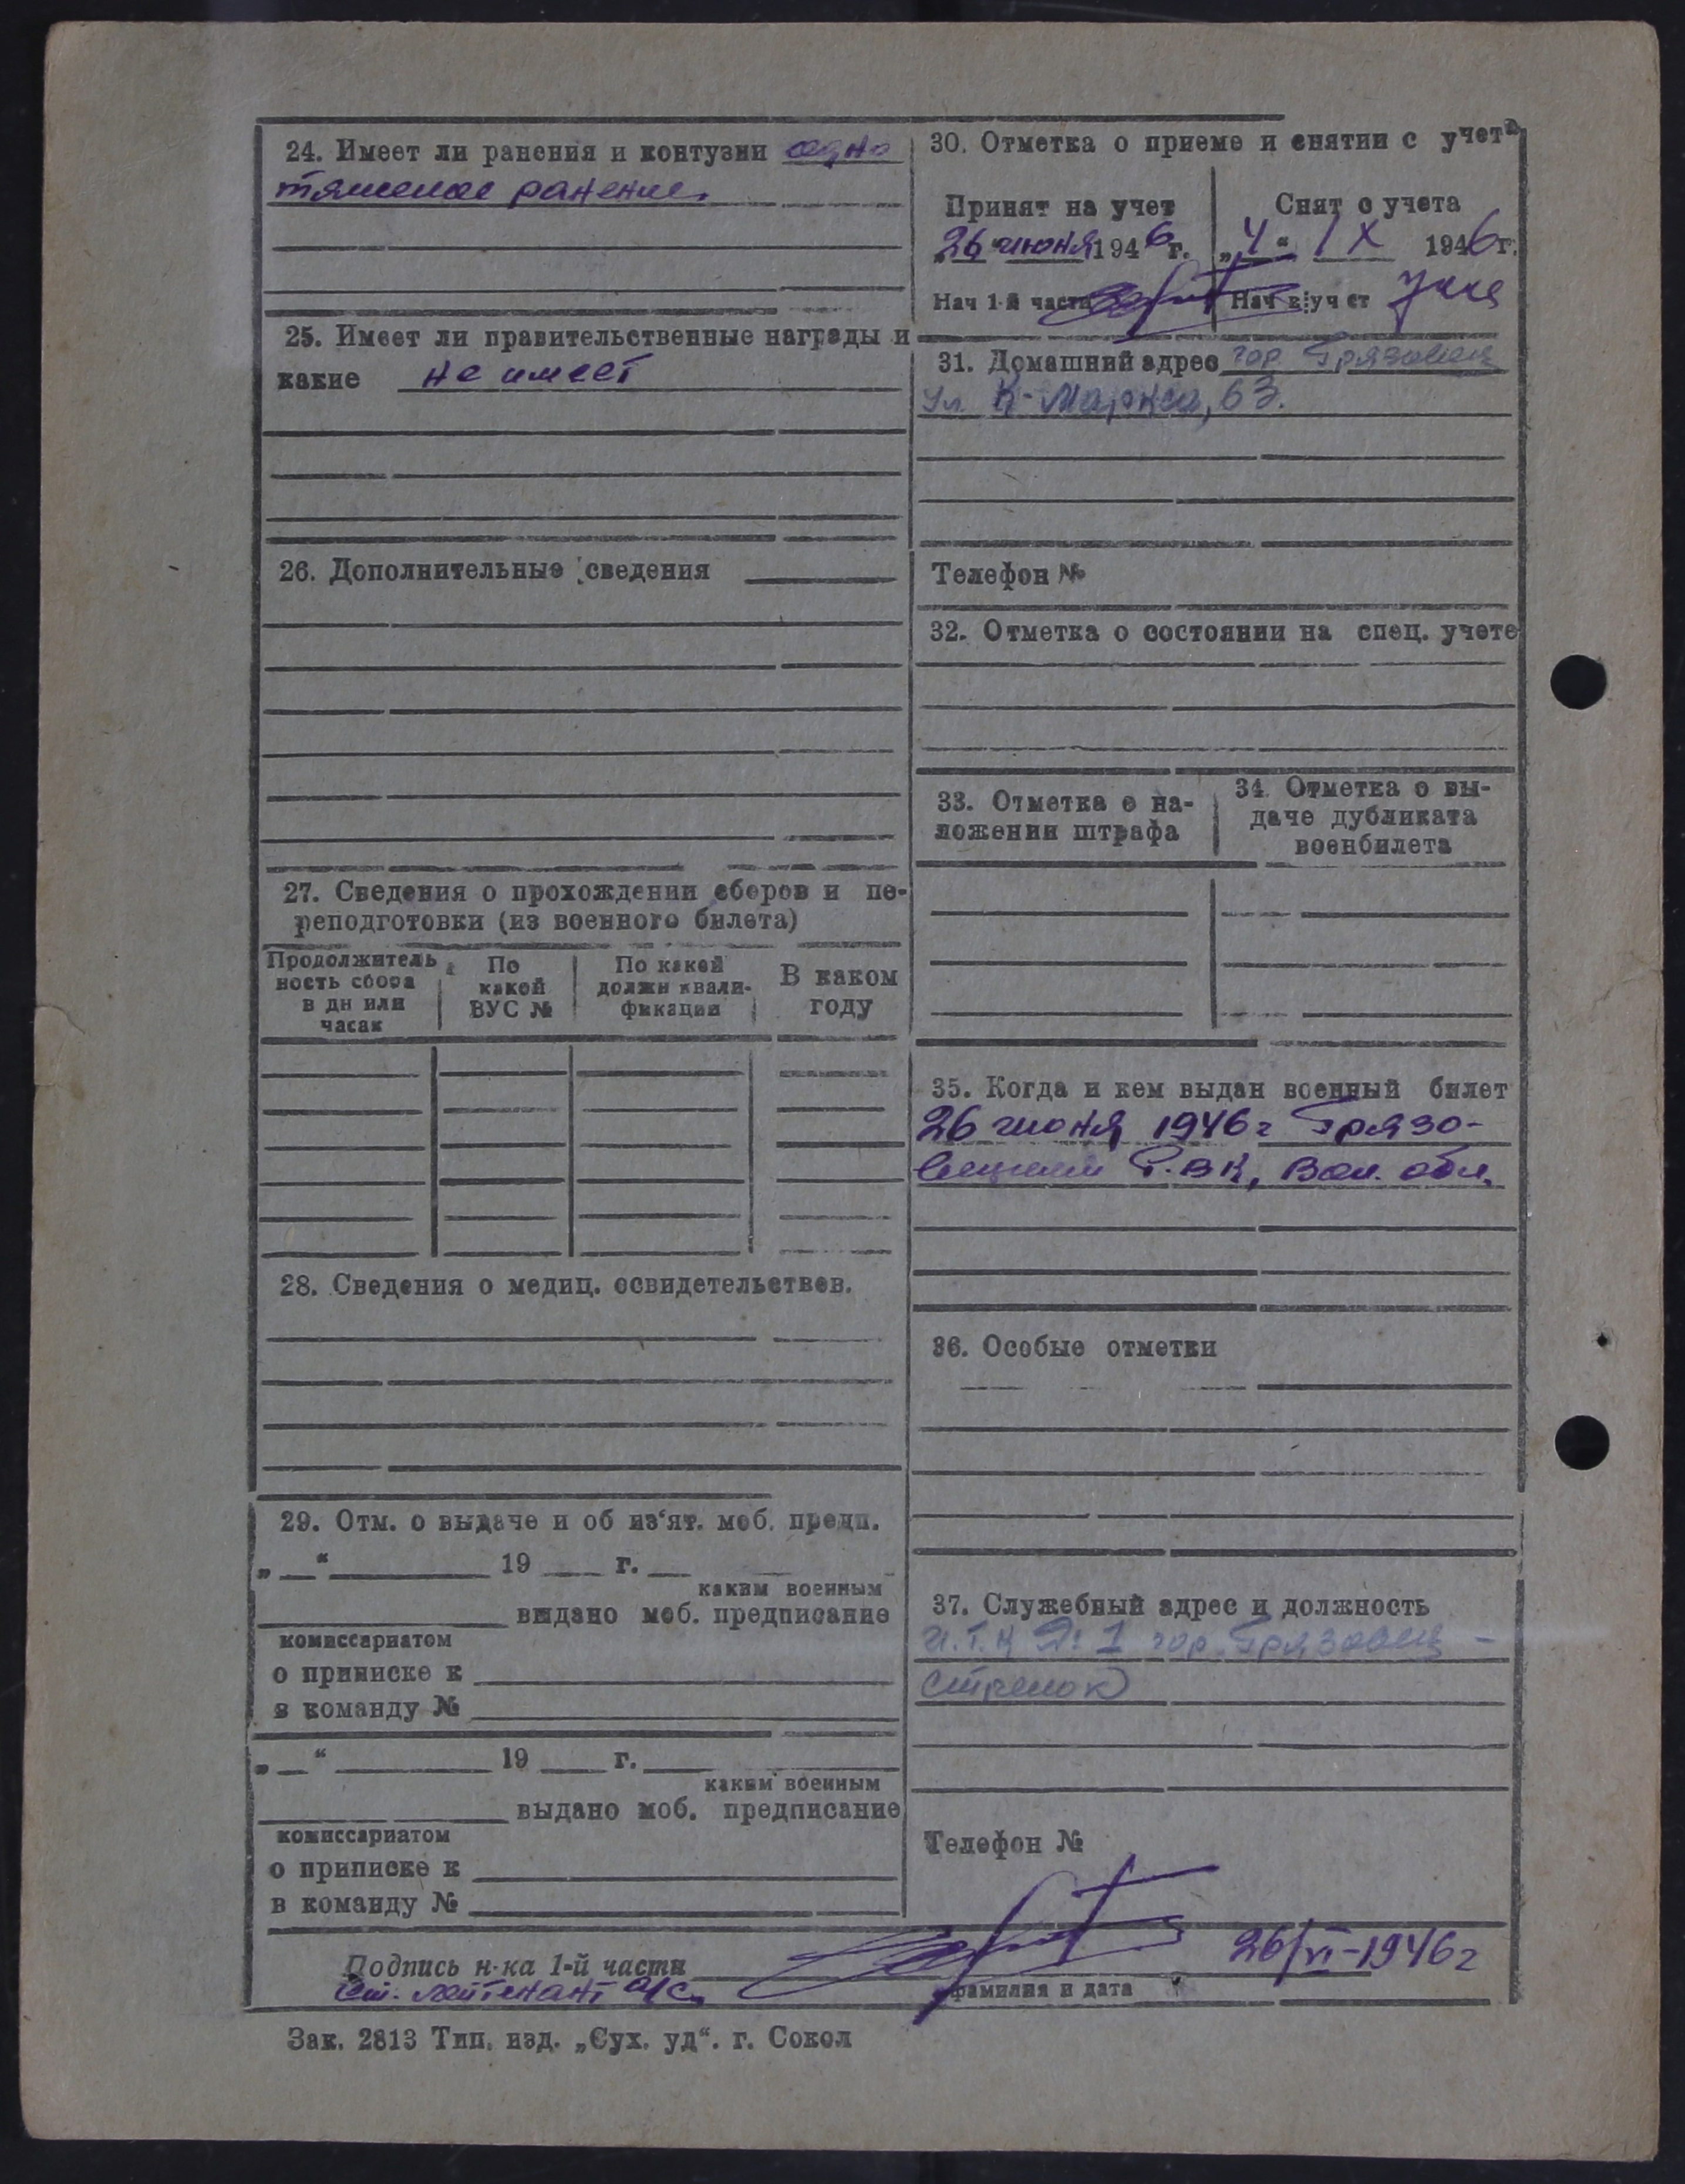 24. Имеет ли ранения и контузии одно
тяжелое ранение.
25. Имеет ли правительственные награды и
какие не имеет
26. Дополнительные сведения
27. Сведения о прохождении сборов и пе-
реподготовки (из военного билета)
Продолжитель
ность сбора
в дн или
часах
По
какой
ВУС №
По какой
должн квали-
фикации
В каком
году
28. Сведения о медиц. освидетельствов.
29. Отм. о выдаче и об из‘ят. моб. предп.
„ “ 19 г.
каким военным
выдано моб. предписание
комиссариатом
о приписке к
в команду №
„ “ 19 г.
каким военным
выдано моб. предписание
комиссариатом
о приписке к
в команду №
30. Отметка о приеме и снятии с учета
Принят на учет
„26“ июня 1946 г.
Нач 1-й части
Снят с учета
„4“ IX 1946 г.
Нач уч ст
31. Домашний адрес гор. Грязовец
ул. К-Маркса, 63.
Телефон №
32. Отметка о состоянии на спец. учете
33. Отметка о на-
ложении штрафа
34. Отметка о вы-
даче дубликата
военбилета
35. Когда и кем выдан военный билет
26 июня 1946 г Грязо-
вецким Р.ВК, Вол. обл.
36. Особые отметки
37. Служебный адрес и должность
И.Т.К № 1 гор. Грязовец -
стрелок
Телефон №
Подпись н-ка 1-й части 26/VI-1946 г
Ст. лейтенант а/с.
фамилия и дата
Зак. 2813 Тип. изд. „Сух. уд“. г. Сокол